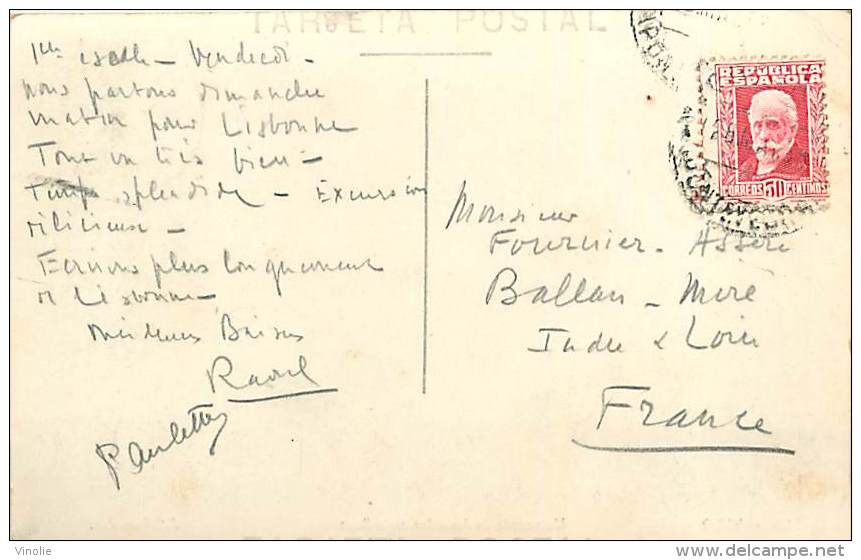 TARJETA POSTAL
1ère escale - Vendredi -
nous partons dimanche
matin pour Lisbonne
Tout va très bien -
Temps splendide - Excursion
délicieuse -
Ecrirons plus longuement
de Lisbonne -
meilleurs Baisers
Raoul
Paulette
REPUBLICA
ESPAÑOLA
CORREOS 30 CENTIMOS
Monsieur
Fournier - Asseré
Ballan - Miré
Indre & Loire
France
Vinolie
www.delcampe.net